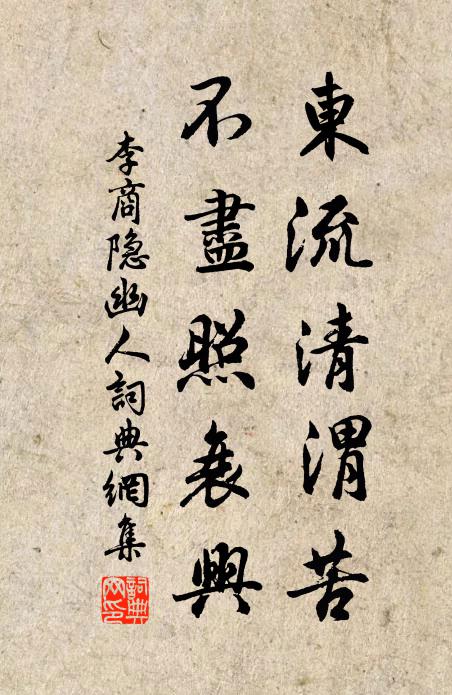 東流清渭苦
不盡照衰興
李商隐幽人詞典網集
詞典
网印